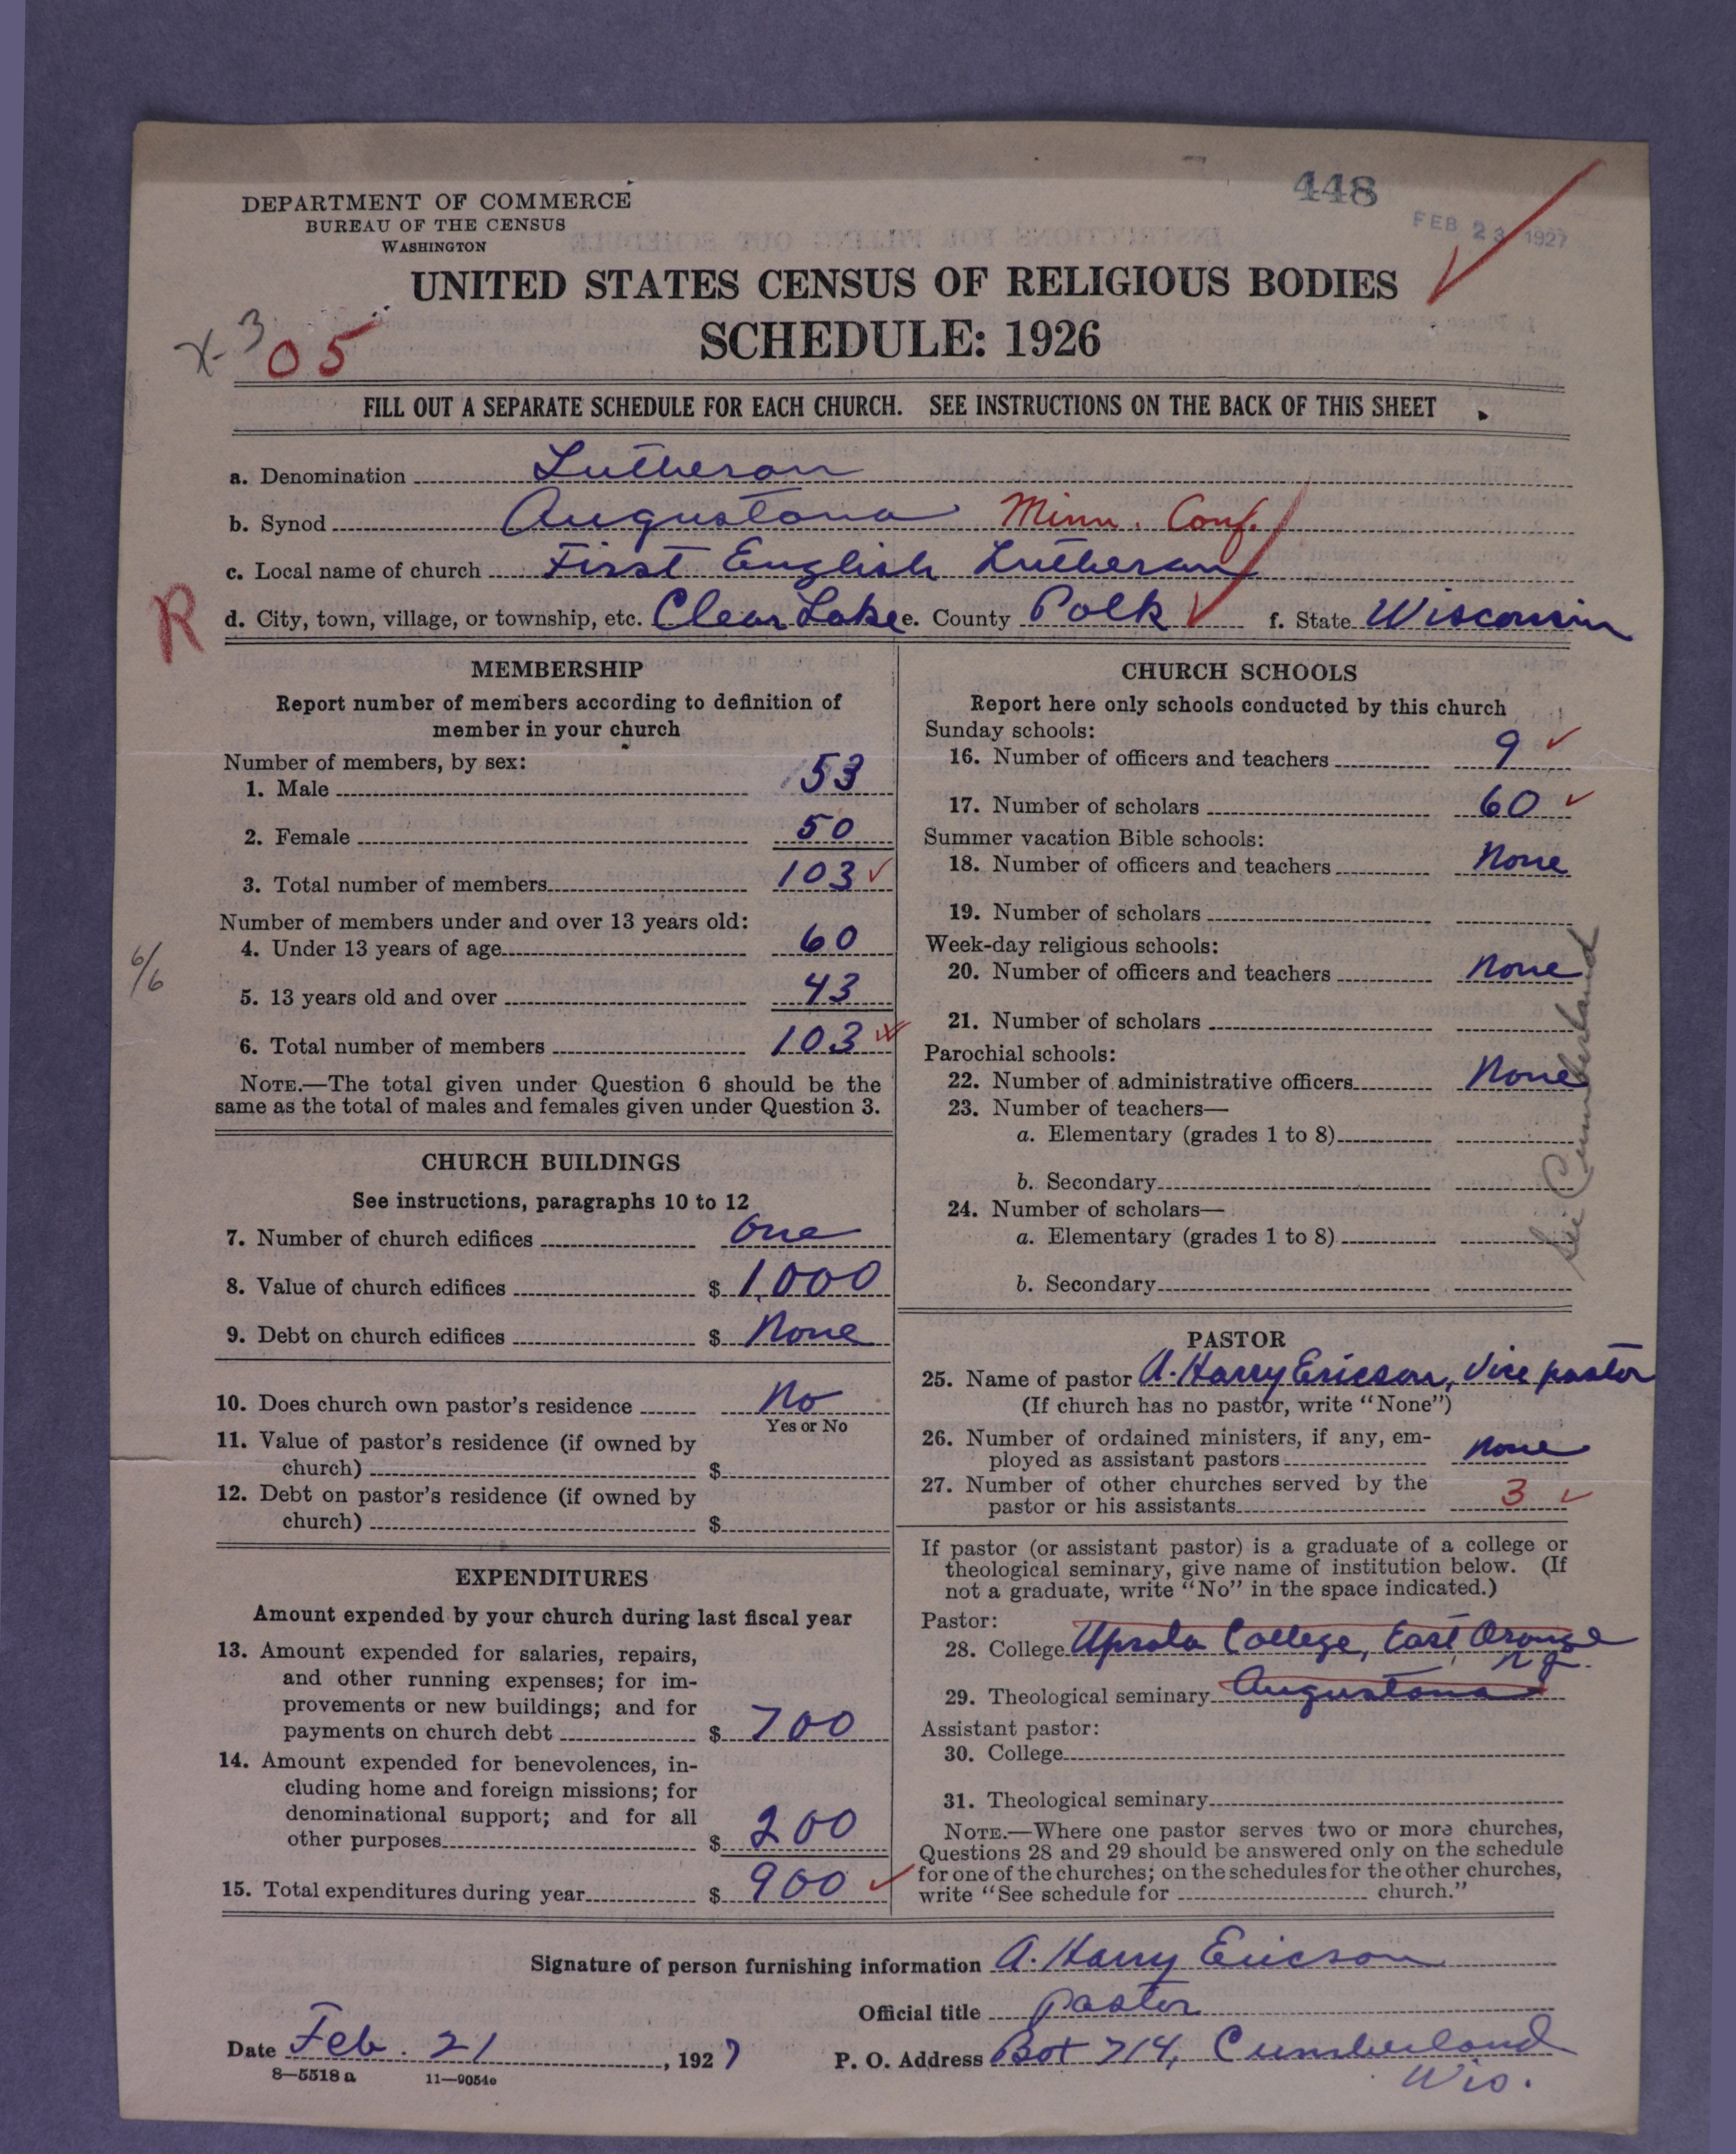 448
FEB 23 1927
DEPARTMENT OF COMMERCE
BUREAU OF THE CENSUS
WASHINGTON
UNITED STATES CENSUS OF RELIGIOUS BODIES
SCHEDULE: 1926
x-3
05
FILL OUT A SEPARATE SCHEDULE FOR EACH CHURCH. SEE INSTRUCTIONS ON THE BACK OF THIS SHEET
a. Denomination Lutheran
b. Synod Augustana Minn. Conf.
c. Local name of church First English Lutheran
R
d. City, town, village, or township, etc. Clear Lake e. County Polk f. State Wisconsin
MEMBERSHIP
Report number of members according to definition of
member in your church
Number of members, by sex:
1. Male 53
2. Female 50
3. Total number of members 103
Number of members under and over 13 years old:
4. Under 13 years of age 60
5. 13 years old and over 43
6/6
6. Total number of members 103
NOTE.—The total given under Question 6 should be the
same as the total of males and females given under Question 3.
CHURCH BUILDINGS
See instructions, paragraphs 10 to 12
7. Number of church edifices One
8. Value of church edifices $ 1,000
9. Debt on church edifices $ None
10. Does church own pastor's residence No
Yes or No
11. Value of pastor's residence (if owned by
church) $
12. Debt on pastor's residence (if owned by
church) $
EXPENDITURES
Amount expended by your church during last fiscal year
13. Amount expended for salaries, repairs,
and other running expenses; for im-
provements or new buildings; and for
payments on church debt $ 700
14. Amount expended for benevolences, in-
cluding home and foreign missions; for
denominational support; and for all
other purposes $ 200
15. Total expenditures during year $ 900
CHURCH SCHOOLS
Report here only schools conducted by this church
Sunday schools:
16. Number of officers and teachers 9
17. Number of scholars 60
Summer vacation Bible schools:
18. Number of officers and teachers None
19. Number of scholars
Week-day religious schools:
20. Number of officers and teachers None
21. Number of scholars
Parochial schools:
22. Number of administrative officers None
23. Number of teachers—
a. Elementary (grades 1 to 8)
b. Secondary
24. Number of scholars—
a. Elementary (grades 1 to 8)
b. Secondary
See Cumberland
PASTOR
25. Name of pastor A. Harry Ericson, Vice pastor
(If church has no pastor, write "None")
26. Number of ordained ministers, if any, em-
ployed as assistant pastors None
27. Number of other churches served by the
pastor or his assistants 3
If pastor (or assistant pastor) is a graduate of a college or
theological seminary, give name of institution below. (If
not a graduate, write "No" in the space indicated.)
Pastor:
28. College Upsala College, East Orange
N.J.
29. Theological seminary Augustana
Assistant pastor:
30. College
31. Theological seminary
NOTE.—Where one pastor serves two or more churches,
Questions 28 and 29 should be answered only on the schedule
for one of the churches; on the schedules for the other churches,
write "See schedule for church."
Signature of person furnishing information A. Harry Ericson
Official title Pastor
Date Feb. 21, 1927
P. O. Address Box 714, Cumberland
Wis.
8—5518 a 11—9054c